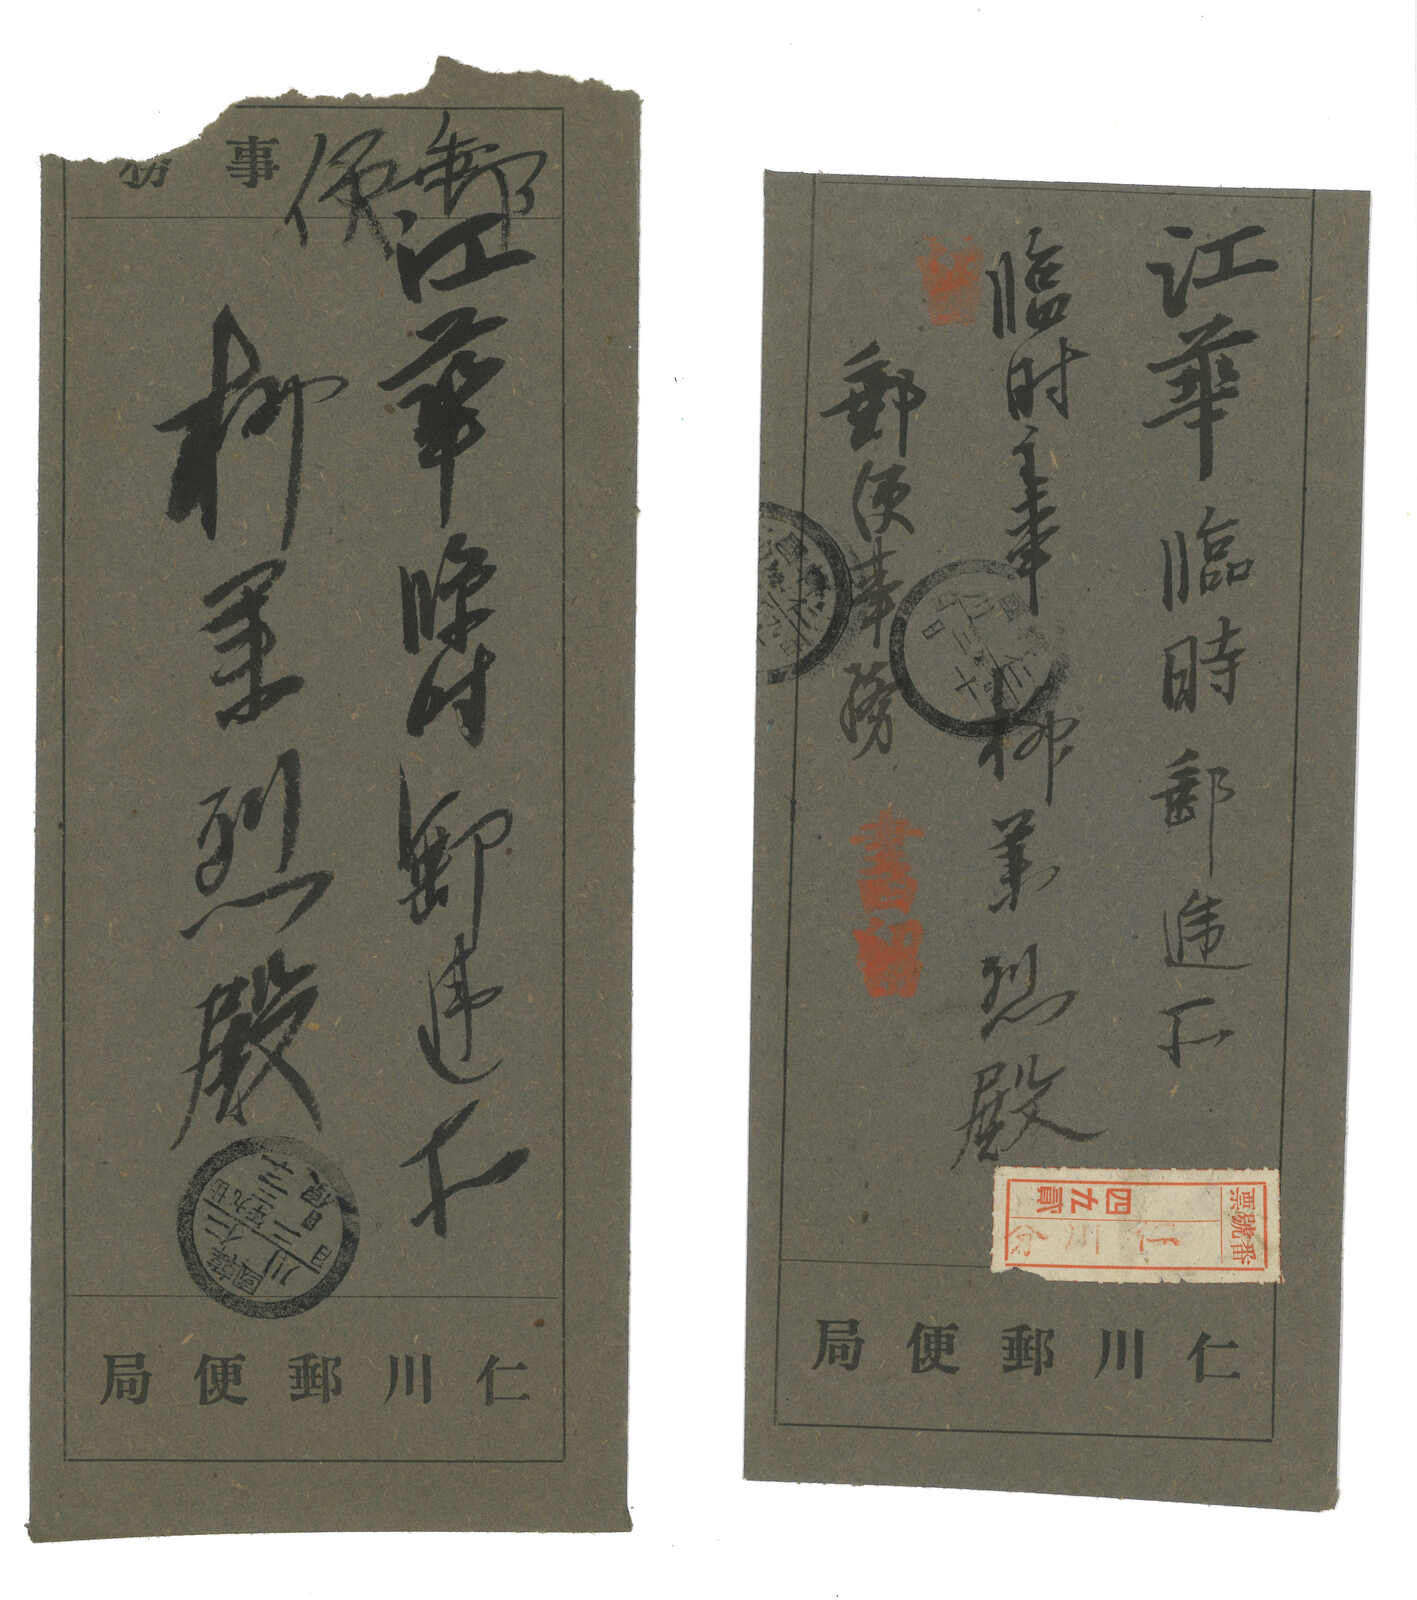 事務
郵便
江華臨時郵逓所
柳業烈殿
仁川郵便局
江華臨時郵逓所
臨時主事 柳業烈殿
郵便事務
書留
番號票
四九貳
仁川郵便局